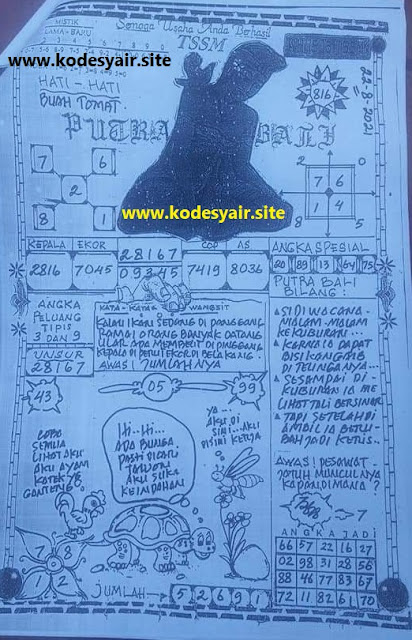 Semoga Usaha Anda Berhasil
TSSM
MISTIK
LAMA - BARU
www.kodesyair.site
HATI - HATI
BUAH TOMAT
816
22-8-2021
PUTRA BALI
7 6
2
8 1
2 0
7 6
1 4
8 5
www.kodesyair.site
KEPALA EKOR
2816 7045
28167
09345
COP AS
7419 8036
ANGKA SPESIAL
20 89 13 64 75
ANGKA
PELUANG
TIPIS
3 DAN 9
UNSUR
28167
KATA - KATA WANGSIT
KALAU IKAN SEDANG DI PANGGANG
RAMAI ORANG BANYAK DATANG
ULAR ADA MEMBELIT DI PINGGANG
KEPALA DI PERUT EKOR DI BELAKANG
AWAS! JUMLAHNYA
PUTRA BALI
BILANG:
SIDI WACANA
MALAM-MALAM
KE KUBURAN...
KARENA DAPAT
BISIKAN GAIB
DI TELINGANYA...
SESAMPAI DI
KUBURAN IA ME
LIHAT TALI BERSINAR
TAPI SETELAH DI
AMBIL IA BERU-
BAH JADI KERIS...
43
05
99
LOBO
SEMUA
LIHAT AKU
AKU AYAM
KATEK YG
GANTENG
HI..HI..
ADA BUNGA
PASTI DICARI
TAWON
AKU SUKA
KEINDAHAN
YA...
AKU DI
SINI...AKU
DISINI KERJA
AWAS! PESAWAT
JATUH MUNCULNYA
KAPAN, DIMANA?
7
7 8
1 2
JUMLAH
5 2 6 9 1
ANGKA JADI
66 57 22 16 27
02 98 31 28 56
88 46 77 83 67
72 11 82 61 70